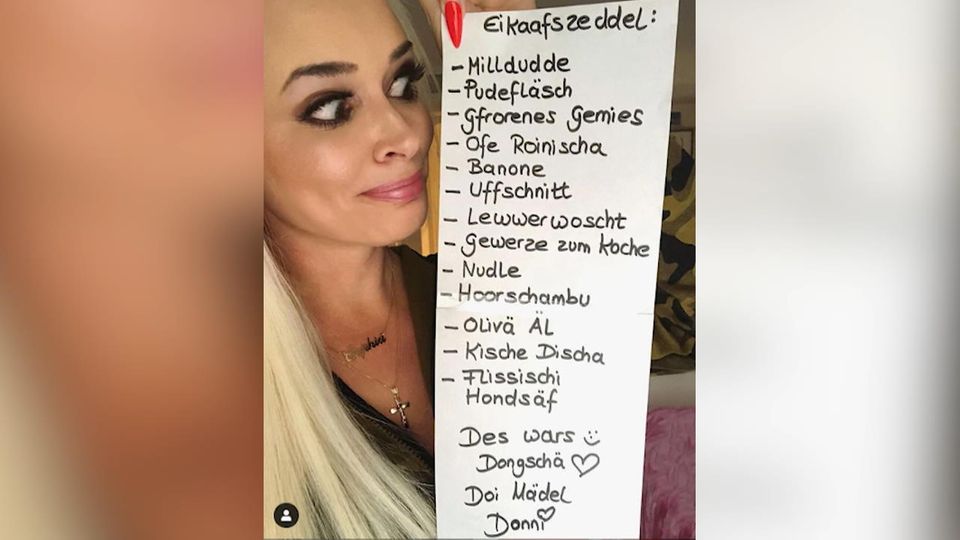 Eikaafszeddel:
- Milldudde
- Pudefläsch
- Gfrorenes Gemies
- Ofe Roinischa
- Banone
- Uffschnitt
- Lewwerwoscht
- Gewerze zum Koche
- Nudle
- Hoorschambu
- Olivä ÄL
- Kische Discha
- Flissischi
Hondsäf
Des wars
Dongschä
Doi Mädel
Donni